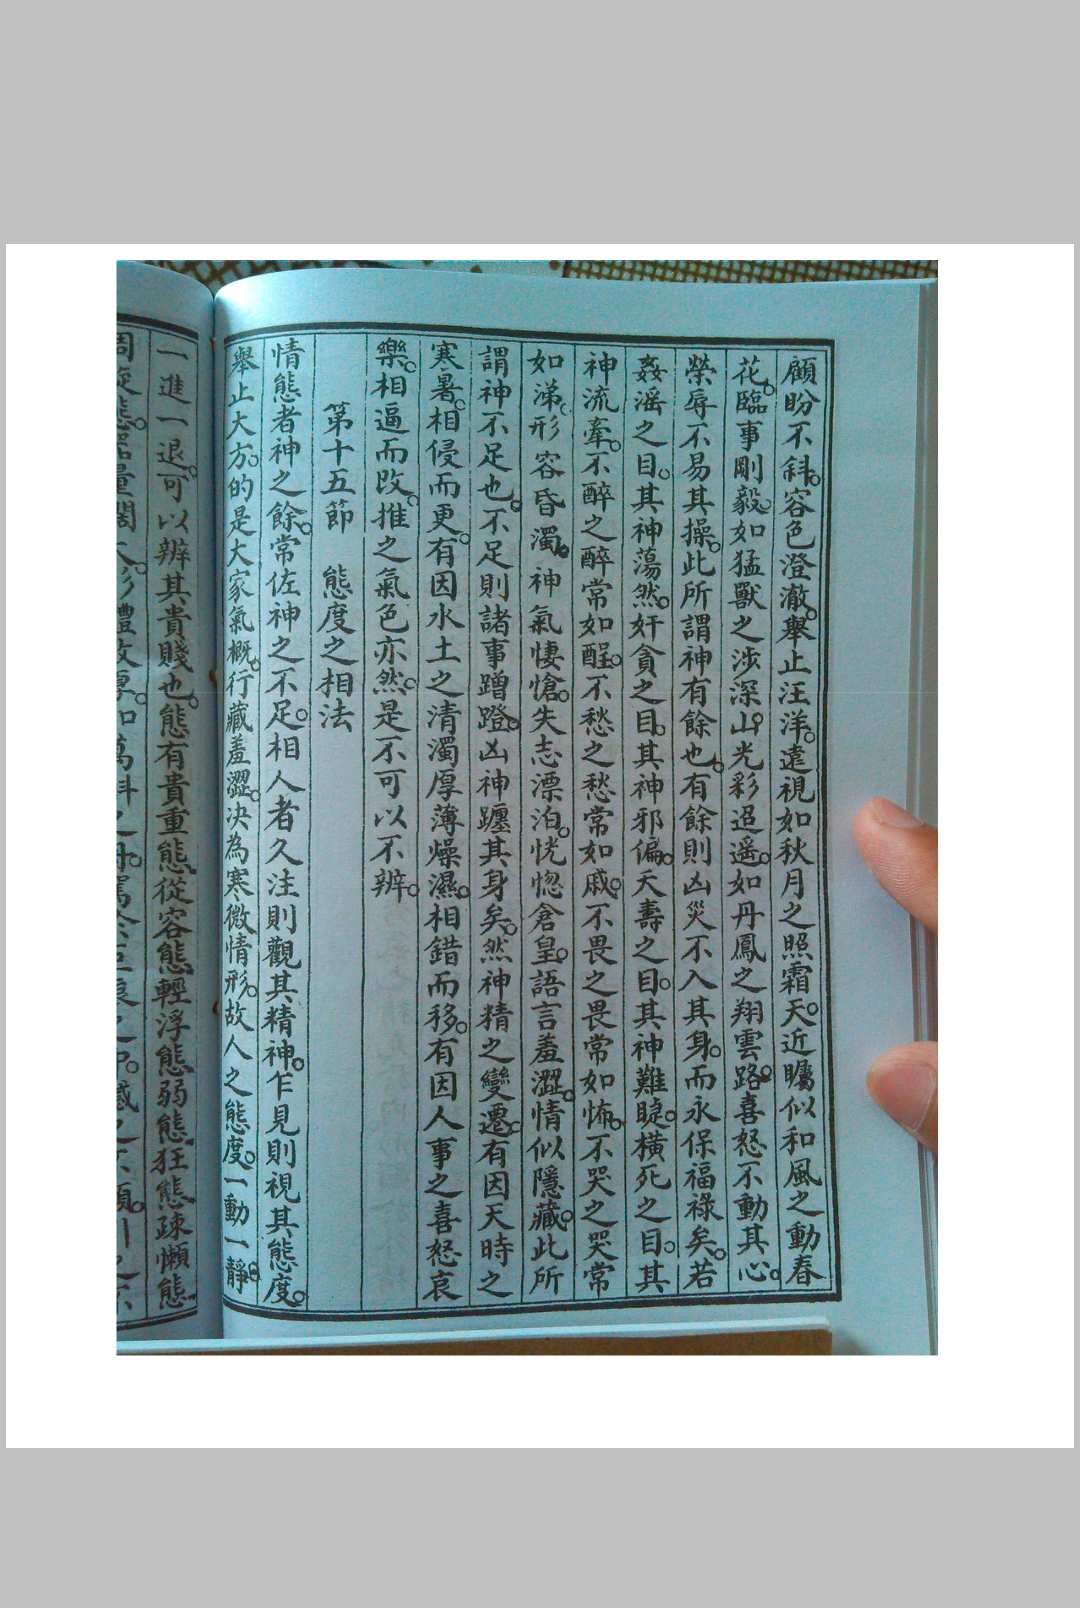 顧盼不斜。容色澄澈。舉止汪洋。遠視如秋月之照霜天。近矚似和風之動春
花。臨事剛毅。如猛獸之涉深山。光彩迢遥。如丹鳳之翔雲路。喜怒不動其心。
榮辱不易其操。此所謂神有餘也。有餘則凶災不入其身。而永保福祿矣。若
姦滛之目。其神蕩然。奸貪之目。其神邪偏。夭壽之目。其神難睫。橫死之目。其
神流牽。不醉之醉常如酲。不愁之愁常如戚。不畏之畏常如怖。不哭之哭常
如涕。形容昏濁。神氣悽愴。失志漂泊。恍惚倉皇。語言羞澀。情似隱藏。此所
謂神不足也。不足則諸事蹭蹬。凶神躔其身矣。然神精之變遷。有因天時之
寒暑。相侵而更。有因水土之清濁厚薄燥濕。相錯而移。有因人事之喜怒哀
樂。相逼而改。推之氣色亦然。是不可以不辨。
第十五節 態度之相法
情態者神之餘。常佐神之不足。相人者久注則觀其精神。乍見則視其態度。
舉止大方。的是大家氣概。行藏羞澀。决為寒微情形。故人之態度。一動一靜。
一進一退。可以辨其貴賤也。態有貴重態。從容態。輕浮態。弱態。狂態。疎懶態。